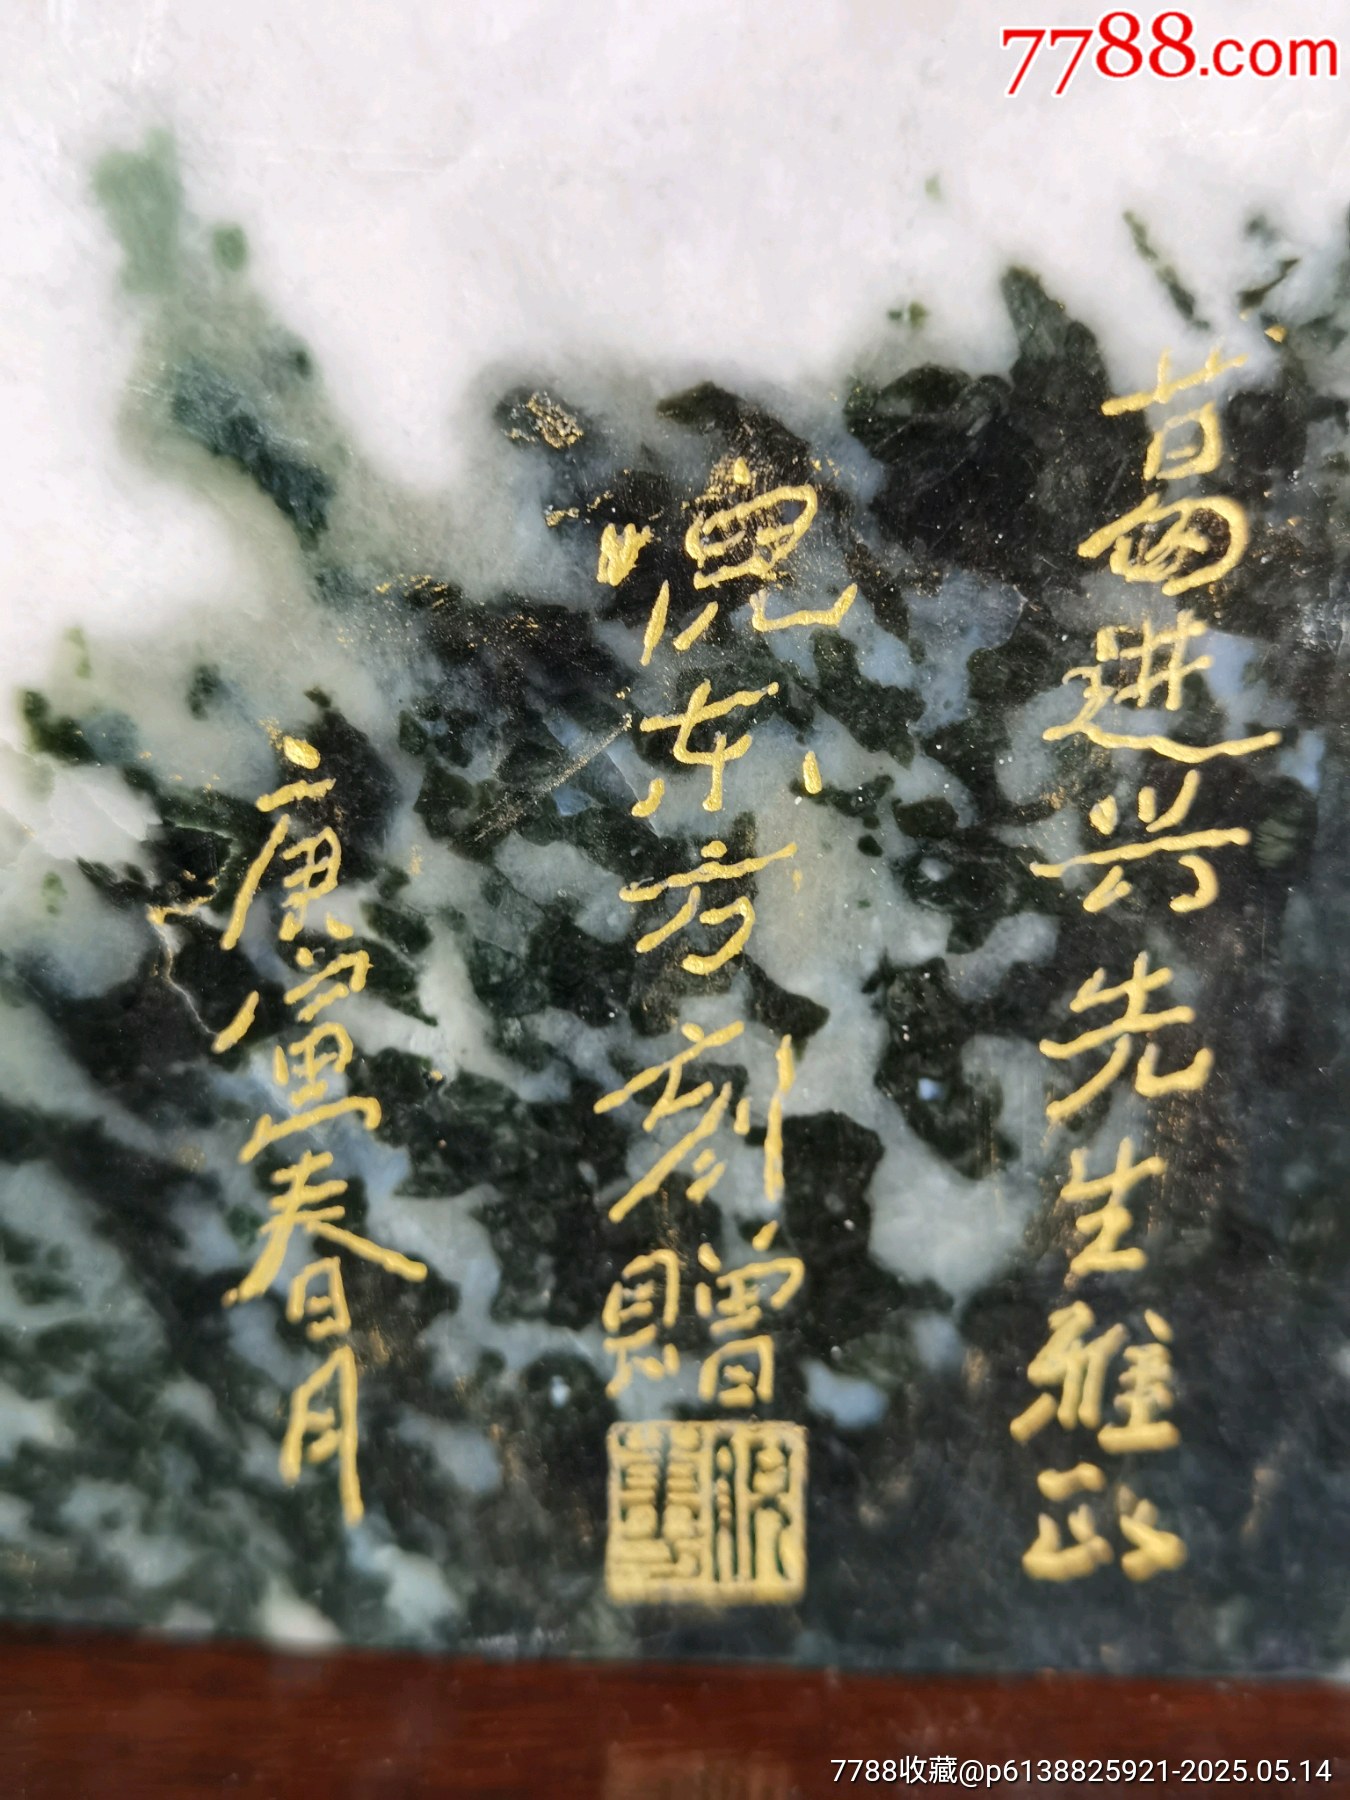 7788.com
葛進兴先生雅正
倪东方刻贈
庚寅春月
7788收藏@p6138825921-2025.05.14